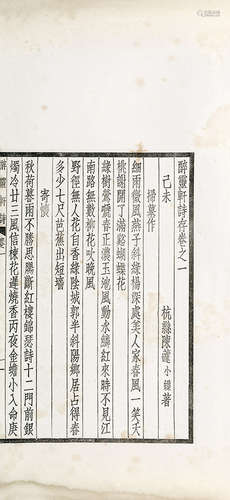 醉靈軒詩存卷之一
己未
杭縣陳蘧小蝶著
掃墓作
細雨微風燕子斜綠楊深處美人家春風一笑夭
桃謝開了滿谿蝴蝶花
綠樹鶯春正濃玉風動水鱗紅來時不見江
南路無數柳花吹晚風
野徑無人花自香綠陰城郭半斜陽鄉居占得春
多少七尺芭蕉出短牆
寄懷
秋荷暮雨不勝思腸斷紅樓錦瑟詩十二門前銀
燭冷廿三風信楝花遲燒香丙夜金蟾小入命庚
醉靈軒詩 卷一